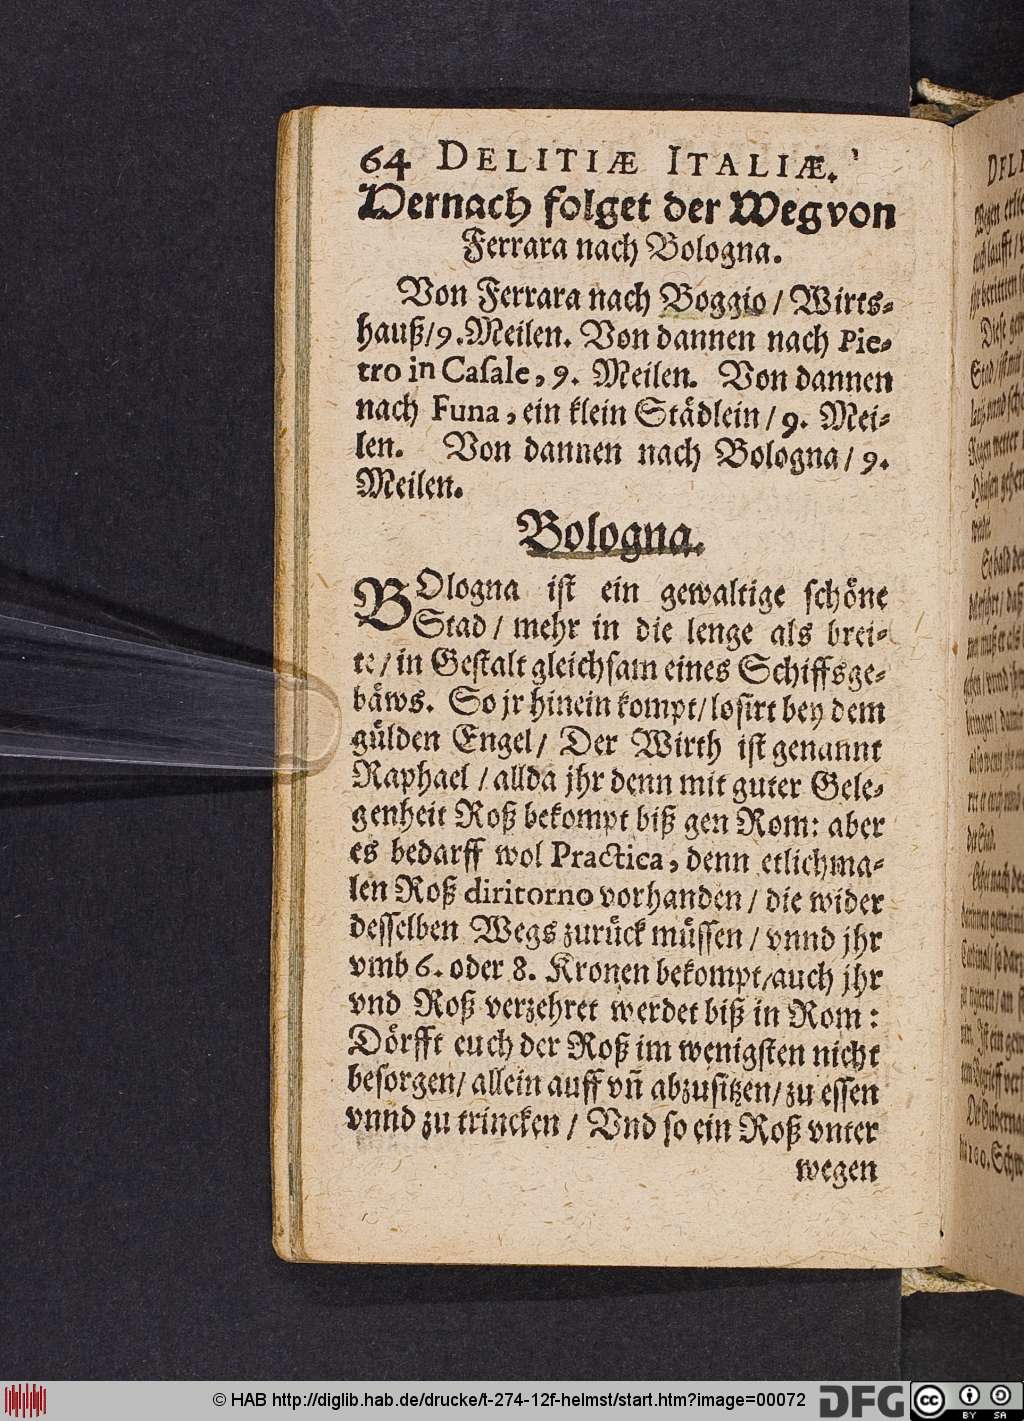 64 DELITIÆ ITALIÆ.
Hernach folget der Weg von
Ferrara nach Bologna.
Von Ferrara nach Boggio / Wirts-
hauß / 9. Meilen. Von dannen nach Pie-
tro in Caſale, 9. Meilen. Von dannen
nach Funa, ein klein Städlein / 9. Mei-
len. Von dannen nach Bologna / 9.
Meilen.
Bologna.
BOlogna iſt ein gewaltige ſchöne
Stad / mehr in die lenge als brei-
te / in Geſtalt gleichſam eines Schiffsge-
bäws. So jr hinein kompt / loſirt bey dem
gülden Engel / Der Wirth iſt genannt
Raphael / allda jhr denn mit guter Gele-
genheit Roß bekompt biß gen Rom: aber
es bedarff wol Practica, denn etlichma-
len Roß diritorno vorhanden / die wider
deſſelben Wegs zurück müſſen / vnnd jhr
vmb 6. oder 8. Kronen bekompt / auch jhr
vnd Roß verzehret werdet biß in Rom:
Dörfft euch der Roß im wenigſten nicht
beſorgen / allein auff vñ abzuſitzen / zu eſſen
vnnd zu trincken / Vnd ſo ein Roß vnter
wegen
© HAB http://diglib.hab.de/drucke/t-274-12f-helmst/start.htm?image=00072
DFG
cc BY SA